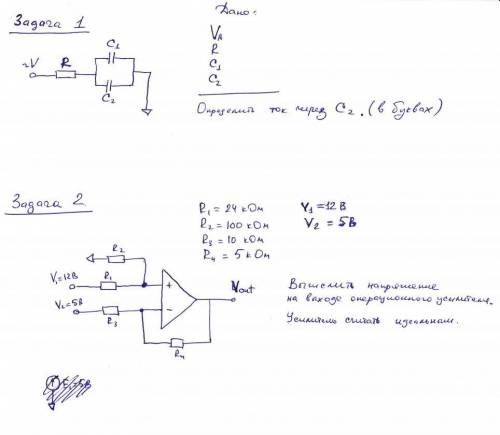 Задача 1
Дано:
V~
R
C1
C2
~V
R
C1
C2
Определить ток через C2. (в буквах)
Задача 2
R1 = 24 кОм
R2 = 100 кОм
R3 = 10 кОм
R4 = 5 кОм
V1 = 12 В
V2 = 5 В
R2
V1=12В
R1
V2=5В
R3
+
−
R4
Vout
Вычислить напряжение
на выходе операционного усилителя.
Усилитель считать идеальным.